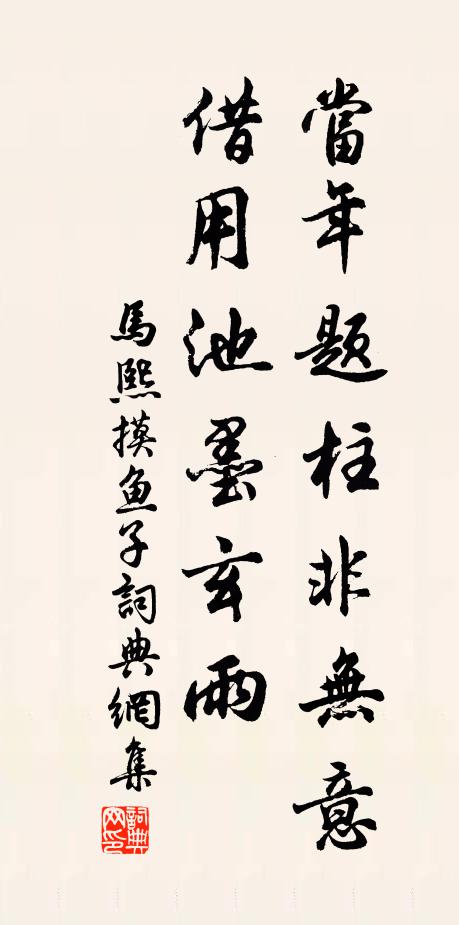 當年題柱非無意
借用池墨玄雨
馬熙摸鱼子詞典網集
詞典网印